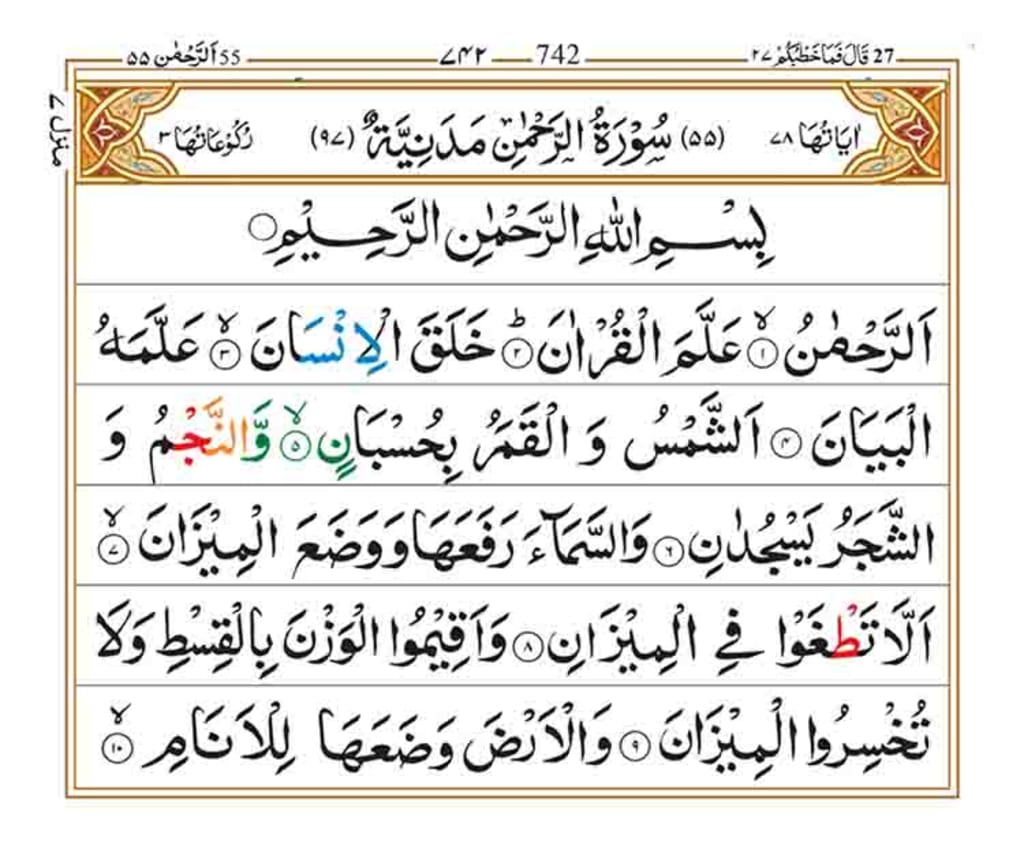 27 قَالَ فَمَا خَطْبُكُمْ ۲۷ 742 ۷۴۲ 55 اَلرَّحْمٰن ۵۵
منزل ۷
اٰیَاتُهَا ۷۸ (۵۵) سُوْرَةُ الرَّحْمٰنِ مَدَنِیَّةٌ (۹۷) رُكُوْعَاتُهَا ۳
بِسْمِ اللّٰهِ الرَّحْمٰنِ الرَّحِیْمِ
اَلرَّحْمٰنُ ۙ﴿۱﴾ عَلَّمَ الْقُرْاٰنَ ؕ﴿۲﴾ خَلَقَ الْاِنْسَانَ ۙ﴿۳﴾ عَلَّمَهُ
الْبَیَانَ ﴿۴﴾ اَلشَّمْسُ وَ الْقَمَرُ بِحُسْبَانٍ ۙ﴿۵﴾ وَّالنَّجْمُ وَ
الشَّجَرُ یَسْجُدٰنِ ﴿۶﴾ وَالسَّمَآءَ رَفَعَهَا وَوَضَعَ الْمِیْزَانَ ۙ﴿۷﴾
اَلَّا تَطْغَوْا فِی الْمِیْزَانِ ﴿۸﴾ وَاَقِیْمُوا الْوَزْنَ بِالْقِسْطِ وَلَا
تُخْسِرُوا الْمِیْزَانَ ﴿۹﴾ وَالْاَرْضَ وَضَعَهَا لِلْاَنَامِ ۙ﴿۱۰﴾